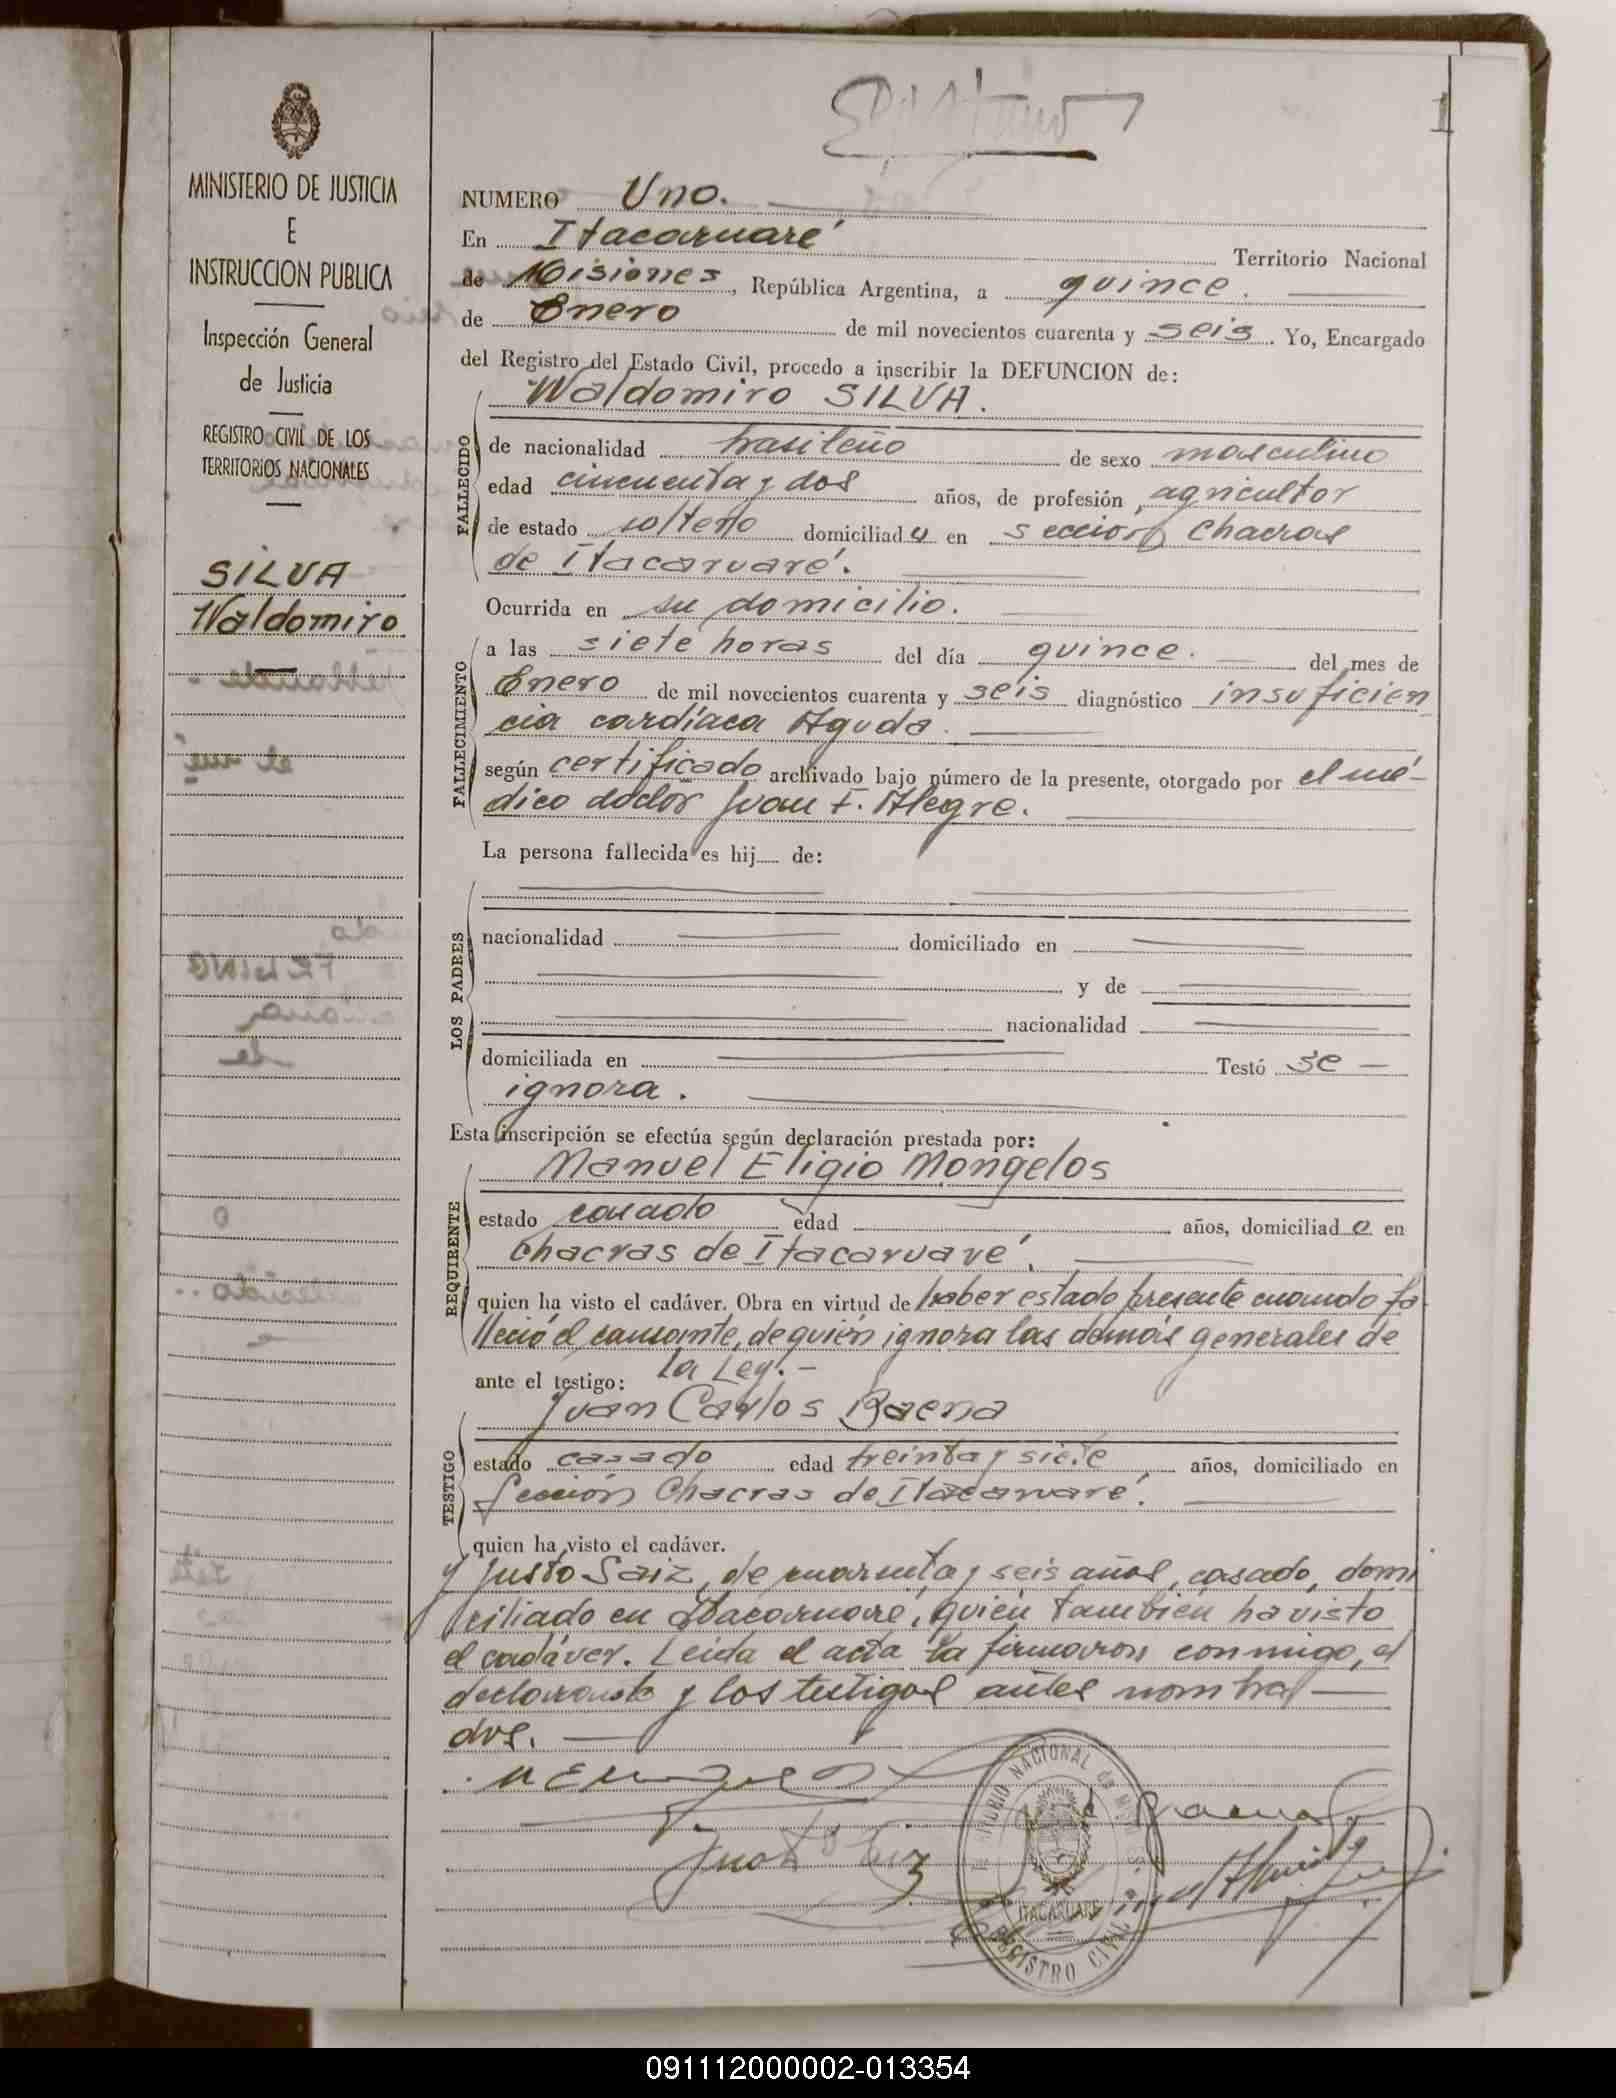 1
MINISTERIO DE JUSTICIA
E
INSTRUCCION PUBLICA
Inspección General
de Justicia
REGISTRO CIVIL DE LOS
TERRITORIOS NACIONALES
SILVA
Waldomiro
NUMERO Uno.
En Itacaruaré Territorio Nacional
de Misiones, República Argentina, a quince.
de Enero de mil novecientos cuarenta y seis. Yo, Encargado
del Registro del Estado Civil, procedo a inscribir la DEFUNCION de:
Waldomiro SILVA.
FALLECIDO
de nacionalidad brasileño de sexo masculino
edad cincuenta y dos años, de profesión agricultor
de estado soltero domiciliado en sección Chacras
de Itacaruaré.
Ocurrida en su domicilio.
FALLECIMIENTO
a las siete horas del día quince. del mes de
Enero de mil novecientos cuarenta y seis diagnóstico insuficien
cia cardíaca Aguda.
según certificado archivado bajo número de la presente, otorgado por el mé-
dico doctor Juan F. Alegre.
La persona fallecida es hij de:
LOS PADRES
nacionalidad domiciliado en
y de
nacionalidad
domiciliada en Testó se
ignora.
Esta inscripción se efectúa según declaración prestada por:
Manuel Eligio Mongelos
REQUIRENTE
estado casado edad años, domiciliado en
Chacras de Itacaruaré.
quien ha visto el cadáver. Obra en virtud de haber estado presente cuando fa
lleció el causante, de quién ignora las demás generales de
la Ley.-
ante el testigo:
Juan Carlos Baena
TESTIGO
estado casado edad treinta y siete años, domiciliado en
Sección Chacras de Itacaruaré.
quien ha visto el cadáver.
y Justo Saiz, de cuarenta y seis años, casado, domi
ciliado en Itacaruaré, quien también ha visto
el cadáver. Leída el acta la firmaron conmigo, el
declarante y los testigos antes nombra
dos.
TERRITORIO NACIONAL DE MISIONES
ITACARUARE
REGISTRO CIVIL
091112000002-013354